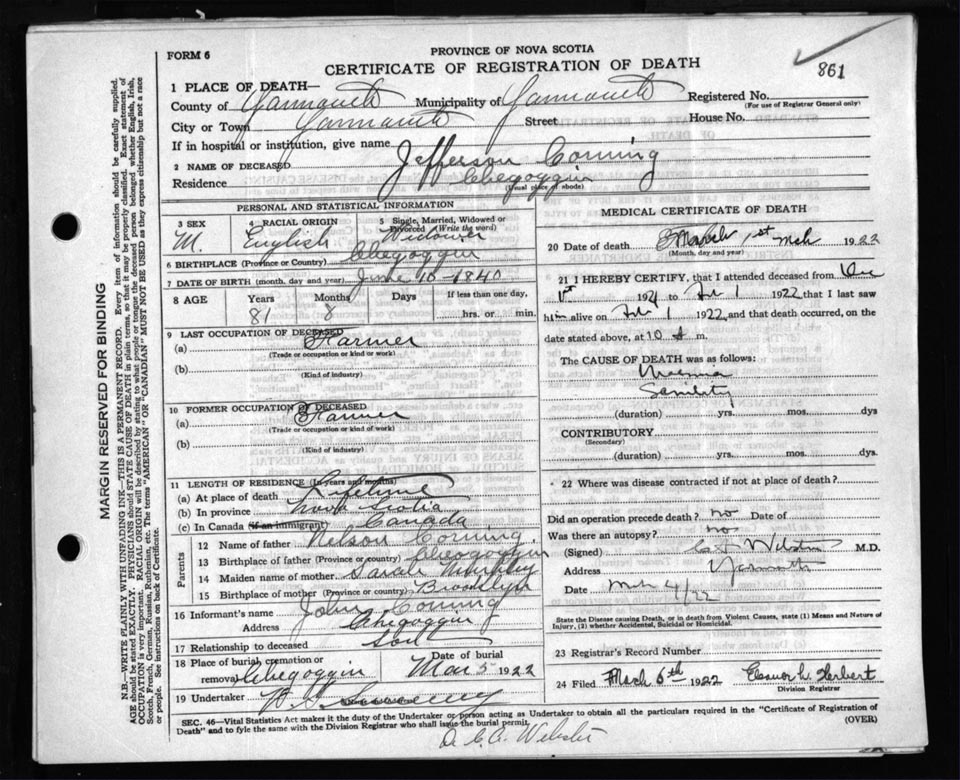 861
FORM 6
PROVINCE OF NOVA SCOTIA
CERTIFICATE OF REGISTRATION OF DEATH
1 PLACE OF DEATH—
County of Yarmouth Municipality of Yarmouth Registered No.
(For use of Registrar General only)
City or Town Yarmouth Street House No.
If in hospital or institution, give name
2 NAME OF DECEASED Jefferson Corning
Residence Chegoggin
(Usual place of abode)
PERSONAL AND STATISTICAL INFORMATION
3 SEX 4 RACIAL ORIGIN 5 Single, Married, Widowed or Divorced (Write the word)
M. English Widower
6 BIRTHPLACE (Province or Country) Chegoggin
7 DATE OF BIRTH (month, day and year) June 10-1840
8 AGE Years Months Days If less than one day,
81 8 hrs. or min.
9 LAST OCCUPATION OF DECEASED
(a) Farmer
(Trade or occupation or kind or work)
(b)
(Kind of industry)
10 FORMER OCCUPATION OF DECEASED
(a) Farmer
(Trade or occupation or kind of work)
(b)
(Kind of industry)
11 LENGTH OF RESIDENCE (In years and months)
(a) At place of death Lifetime
(b) In province Nova Scotia
(c) In Canada (if an immigrant) Canada
Parents
12 Name of father Nelson Corning.
13 Birthplace of father (Province or country) Chegoggin
14 Maiden name of mother Sarah Murphy
15 Birthplace of mother (Province or country) Brooklyn
16 Informant's name John Corning
Address Chegoggin
17 Relationship to deceased Son
18 Place of burial, cremation or removal Chegoggin Date of burial Mar 5 1922
19 Undertaker Sweeney
MEDICAL CERTIFICATE OF DEATH
20 Date of death March 1st Mch 1922
(Month, day and year)
21 I HEREBY CERTIFY, that I attended deceased from Dec
1st 1921 to 1 1922 that I last saw
him alive on 1 1922, and that death occurred, on the
date stated above, at 10 m.
The CAUSE OF DEATH was as follows:
Uraemia
Senility
(duration) yrs. mos. dys
CONTRIBUTORY
(Secondary)
(duration) yrs. mos. dys
22 Where was disease contracted if not at place of death?
Did an operation precede death? no Date of
Was there an autopsy? no
(Signed) Webster M.D.
Address Yarmouth
Date Mch 4/22
State the Disease causing Death, or in death from Violent Causes, state (1) Means and Nature of
Injury, (2) whether Accidental, Suicidal or Homicidal.
23 Registrar's Record Number
24 Filed March 6th 1922 Eleanor L. Herbert
Division Registrar
SEC. 46—Vital Statistics Act makes it the duty of the Undertaker or person acting as Undertaker to obtain all the particulars required in the "Certificate of Registration of
Death" and to fyle the same with the Division Registrar who shall issue the burial permit.
(OVER)
Webster
MARGIN RESERVED FOR BINDING
N.B.—WRITE PLAINLY WITH UNFADING INK—THIS IS A PERMANENT RECORD. Every item of information should be carefully supplied.
AGE should be stated EXACTLY. PHYSICIANS should STATE CAUSE OF DEATH in plain terms, so that it may be properly classified. Exact statement of
OCCUPATION is very important. RACIAL ORIGIN will be described by stating to what people or tongue the deceased person belonged whether English, Irish,
Scotch, French, German, Russian, Ruthenian, etc. The terms "AMERICAN" OR "CANADIAN" MUST NOT BE USED as they express citizenship but not a race
or people. See instructions on back of Certificate.